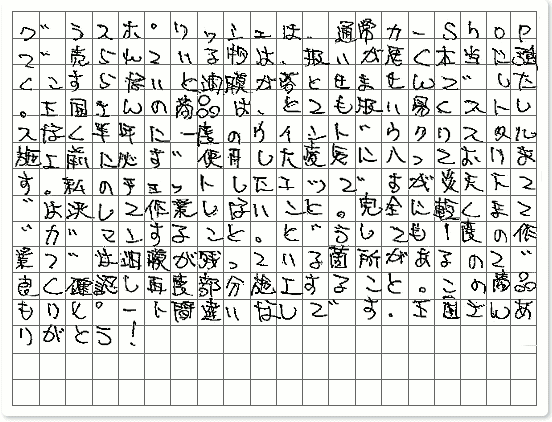 グラスポリッシュは、通常カーShOP
で売られている物は、扱いが悪く本当に強
くこすら無いと油膜が落ときませんでした
。王国さんの商品は、とても扱い易くストレ
ス無く半年に一度のウインドウクリスタル
施工前に必ず使用した変気に入っておりま
す。私のチェットしたエッですが炎天で
は決して作業しないこと。完全に乾くまで
ガマンすること。どうしても1度の作
業では油膜が残っている箇所があるので
良く確認し再度部分施工すること。この商品
もリピート間違いなしです。王国さんあ
りがとう!